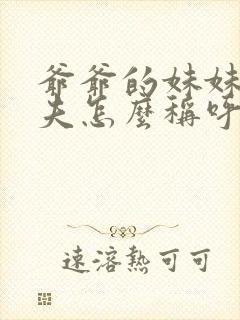 爺爺的妹妹
夫怎麼稱呼
速溶熱可可